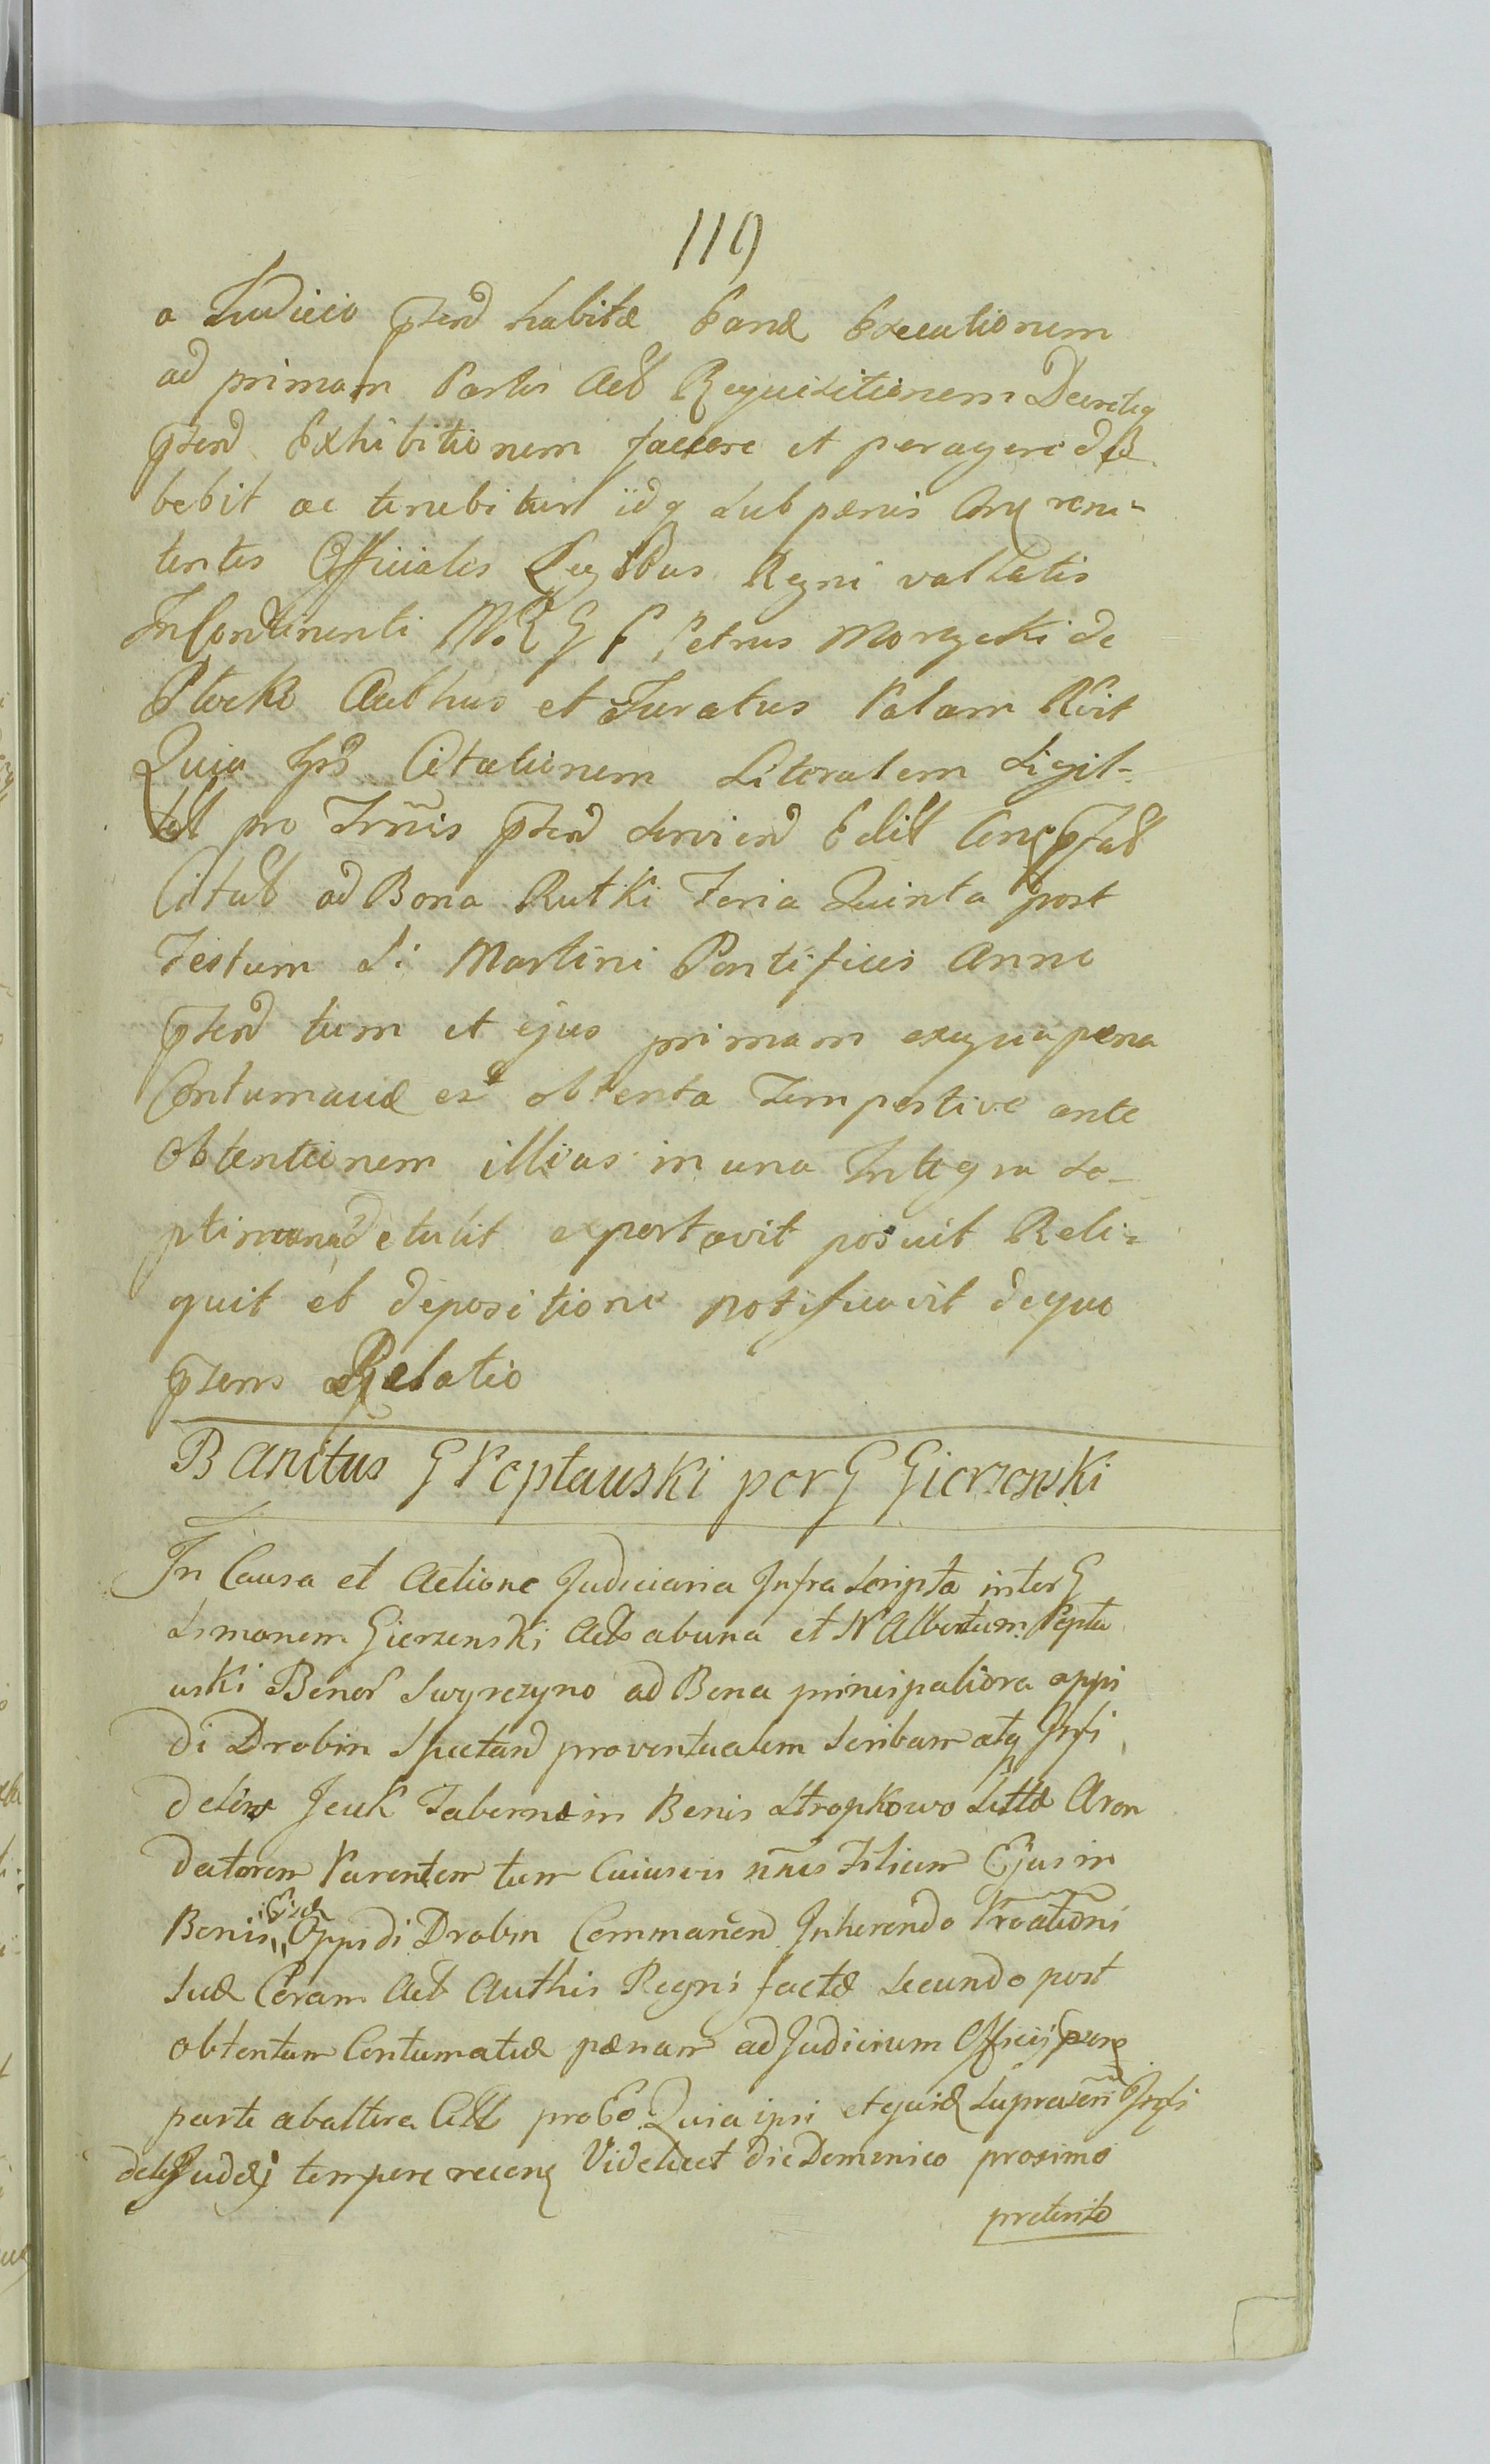 119
a Judicio pterd habitæ Banæ Executionem
ad primam Partis Act Requisitionem Decretiq
pterd Exhibitionem facere et peragere de
bebit ac tenebitur idq sub pænis Cong reni-
tentes Officiales Legibus Regni vallatis
In Continenti M. R G P Petrus Morzycki de
Plocko Authus et Juratus Palam Rvit
Quia Ips Citationem Literalem Sigil-
tat pro Trñis pterd serviend Edit Cong ptat
Citat ad Bona Rutki Feria Quinta post
Festum S: Martini Pontificis Anno
pterd tum et ejus primam ex qua pæna
Contumaciæ est obtenta Tempestive ante
Obtentionem illius in una Integra se-
ptimana detulit exportavit posuit Reli-
quit et depositione notificavit de quo
pzens Relatio
Banitus G Peptauski per G Gierzewski
In Causa et Actione Judiciaria Infra Scripta inter G
Simonem Gierzenski Act ab una et N Albertum Pepta
uski Bonor Swyrczyno ad Bona principaliora oppi
di Drobin Spectand proventualem Scribam atq Infi
delem Jcuk Tabernæ in Bonis Stropkowo Sittæ Aron
datorem Parentem tum Cuiusvis nñis Filium Ejus in
Bonis Eisd Oppidi Drobin Commanend Inherendo Proationi
suæ Coram Act Authis Regni factæ Secundo post
obtentam Contumatiæ pænam ad Judicium Officij pzens
parte ab altera Citt pro Eo Quia ipsi et quidẽ supraten Infi
delis Judæj tempore recenq Videlicet die Dominico proximo
preterito